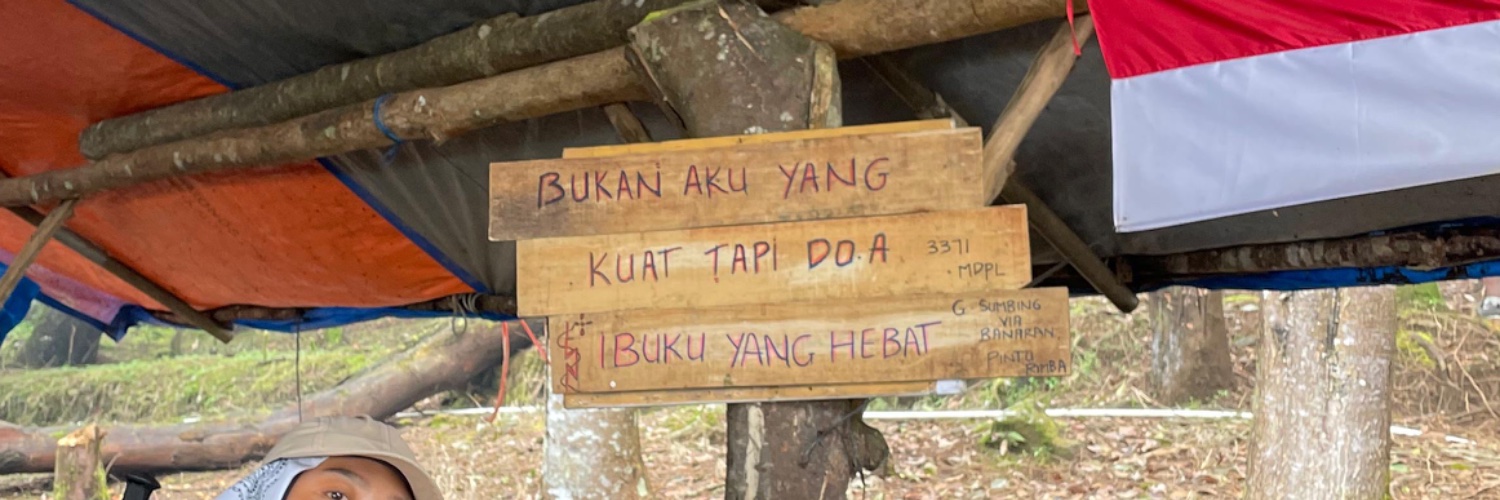 BUKAN AKU YANG
KUAT TAPI DO.A
3371
MDPL
IBUKU YANG HEBAT
G. SUMBING
VIA
BANARAN
PINTU
RIMBA